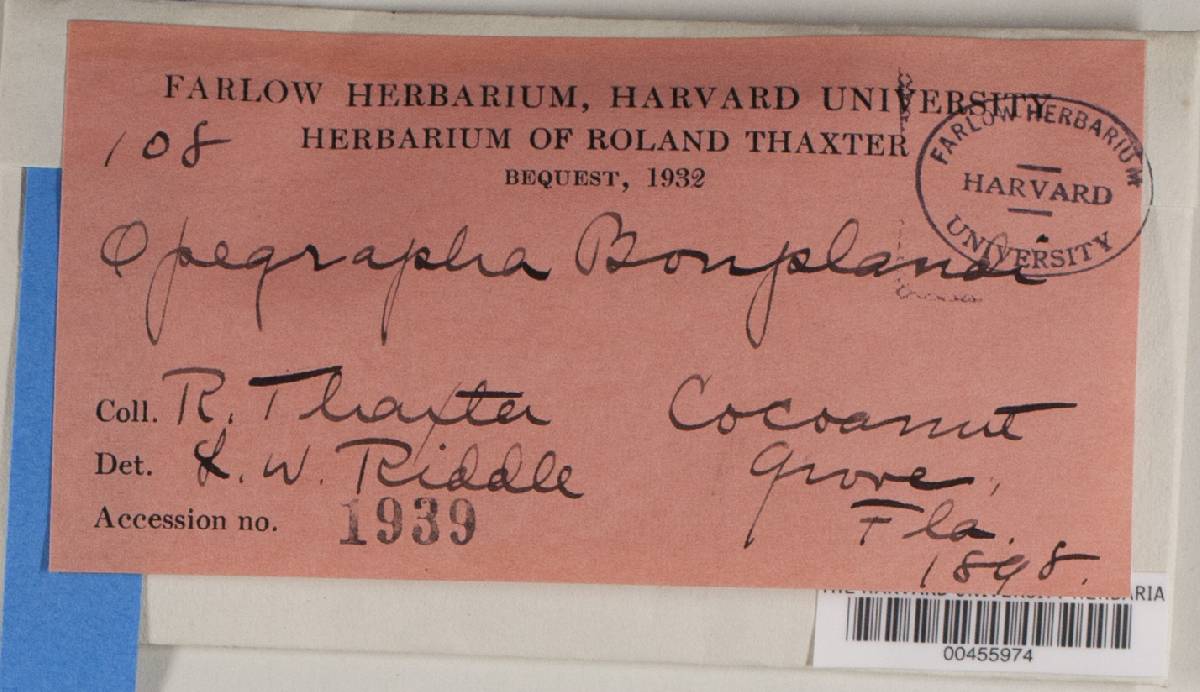 FARLOW HERBARIUM, HARVARD UNIVERSITY
108
HERBARIUM OF ROLAND THAXTER
BEQUEST, 1932
FARLOW HERBARIUM
HARVARD
UNIVERSITY
Opegrapha Bonplandi
Coll. R. Thaxter
Cocoanut
Det. L. W. Riddle
Grove,
Accession no. 1939
Fla.
1898.
THE HARVARD UNIVERSITY HERBARIA
00455974